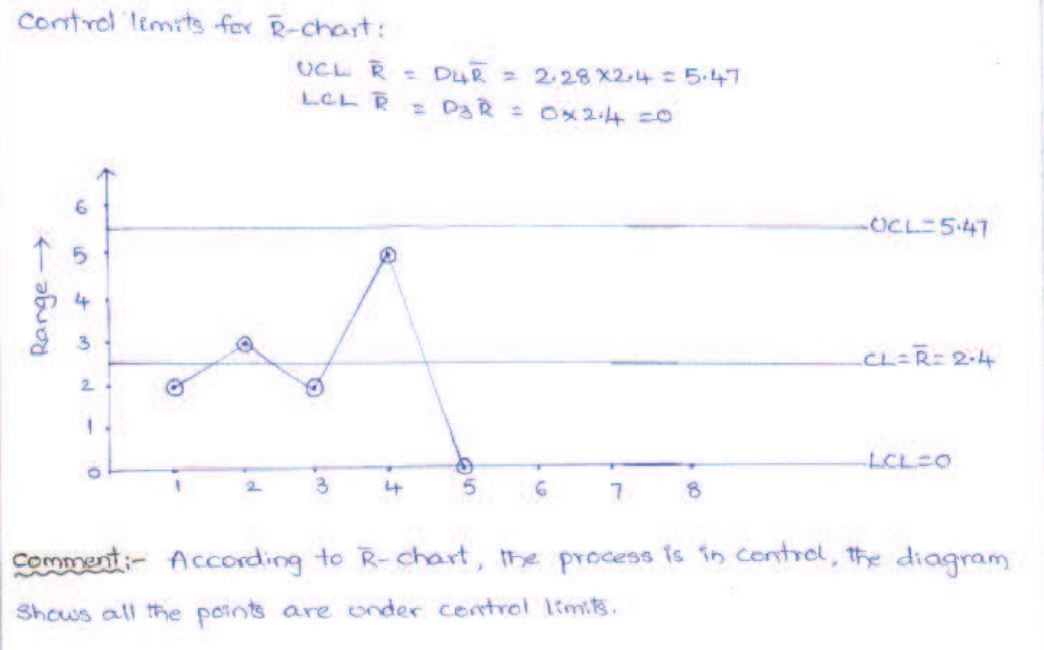 Control limits for R̄-chart:
UCL R̄ = D4R̄ = 2.28 x 2.4 = 5.47
LCL R̄ = D3R̄ = 0 x 2.4 = 0
6
UCL=5.47
5
4
3
CL=R̄=2.4
2
1
0
LCL=0
Range →
1 2 3 4 5 6 7 8
Comment:- According to R̄-chart, the process is in control, the diagram
Shows all the points are under control limits.